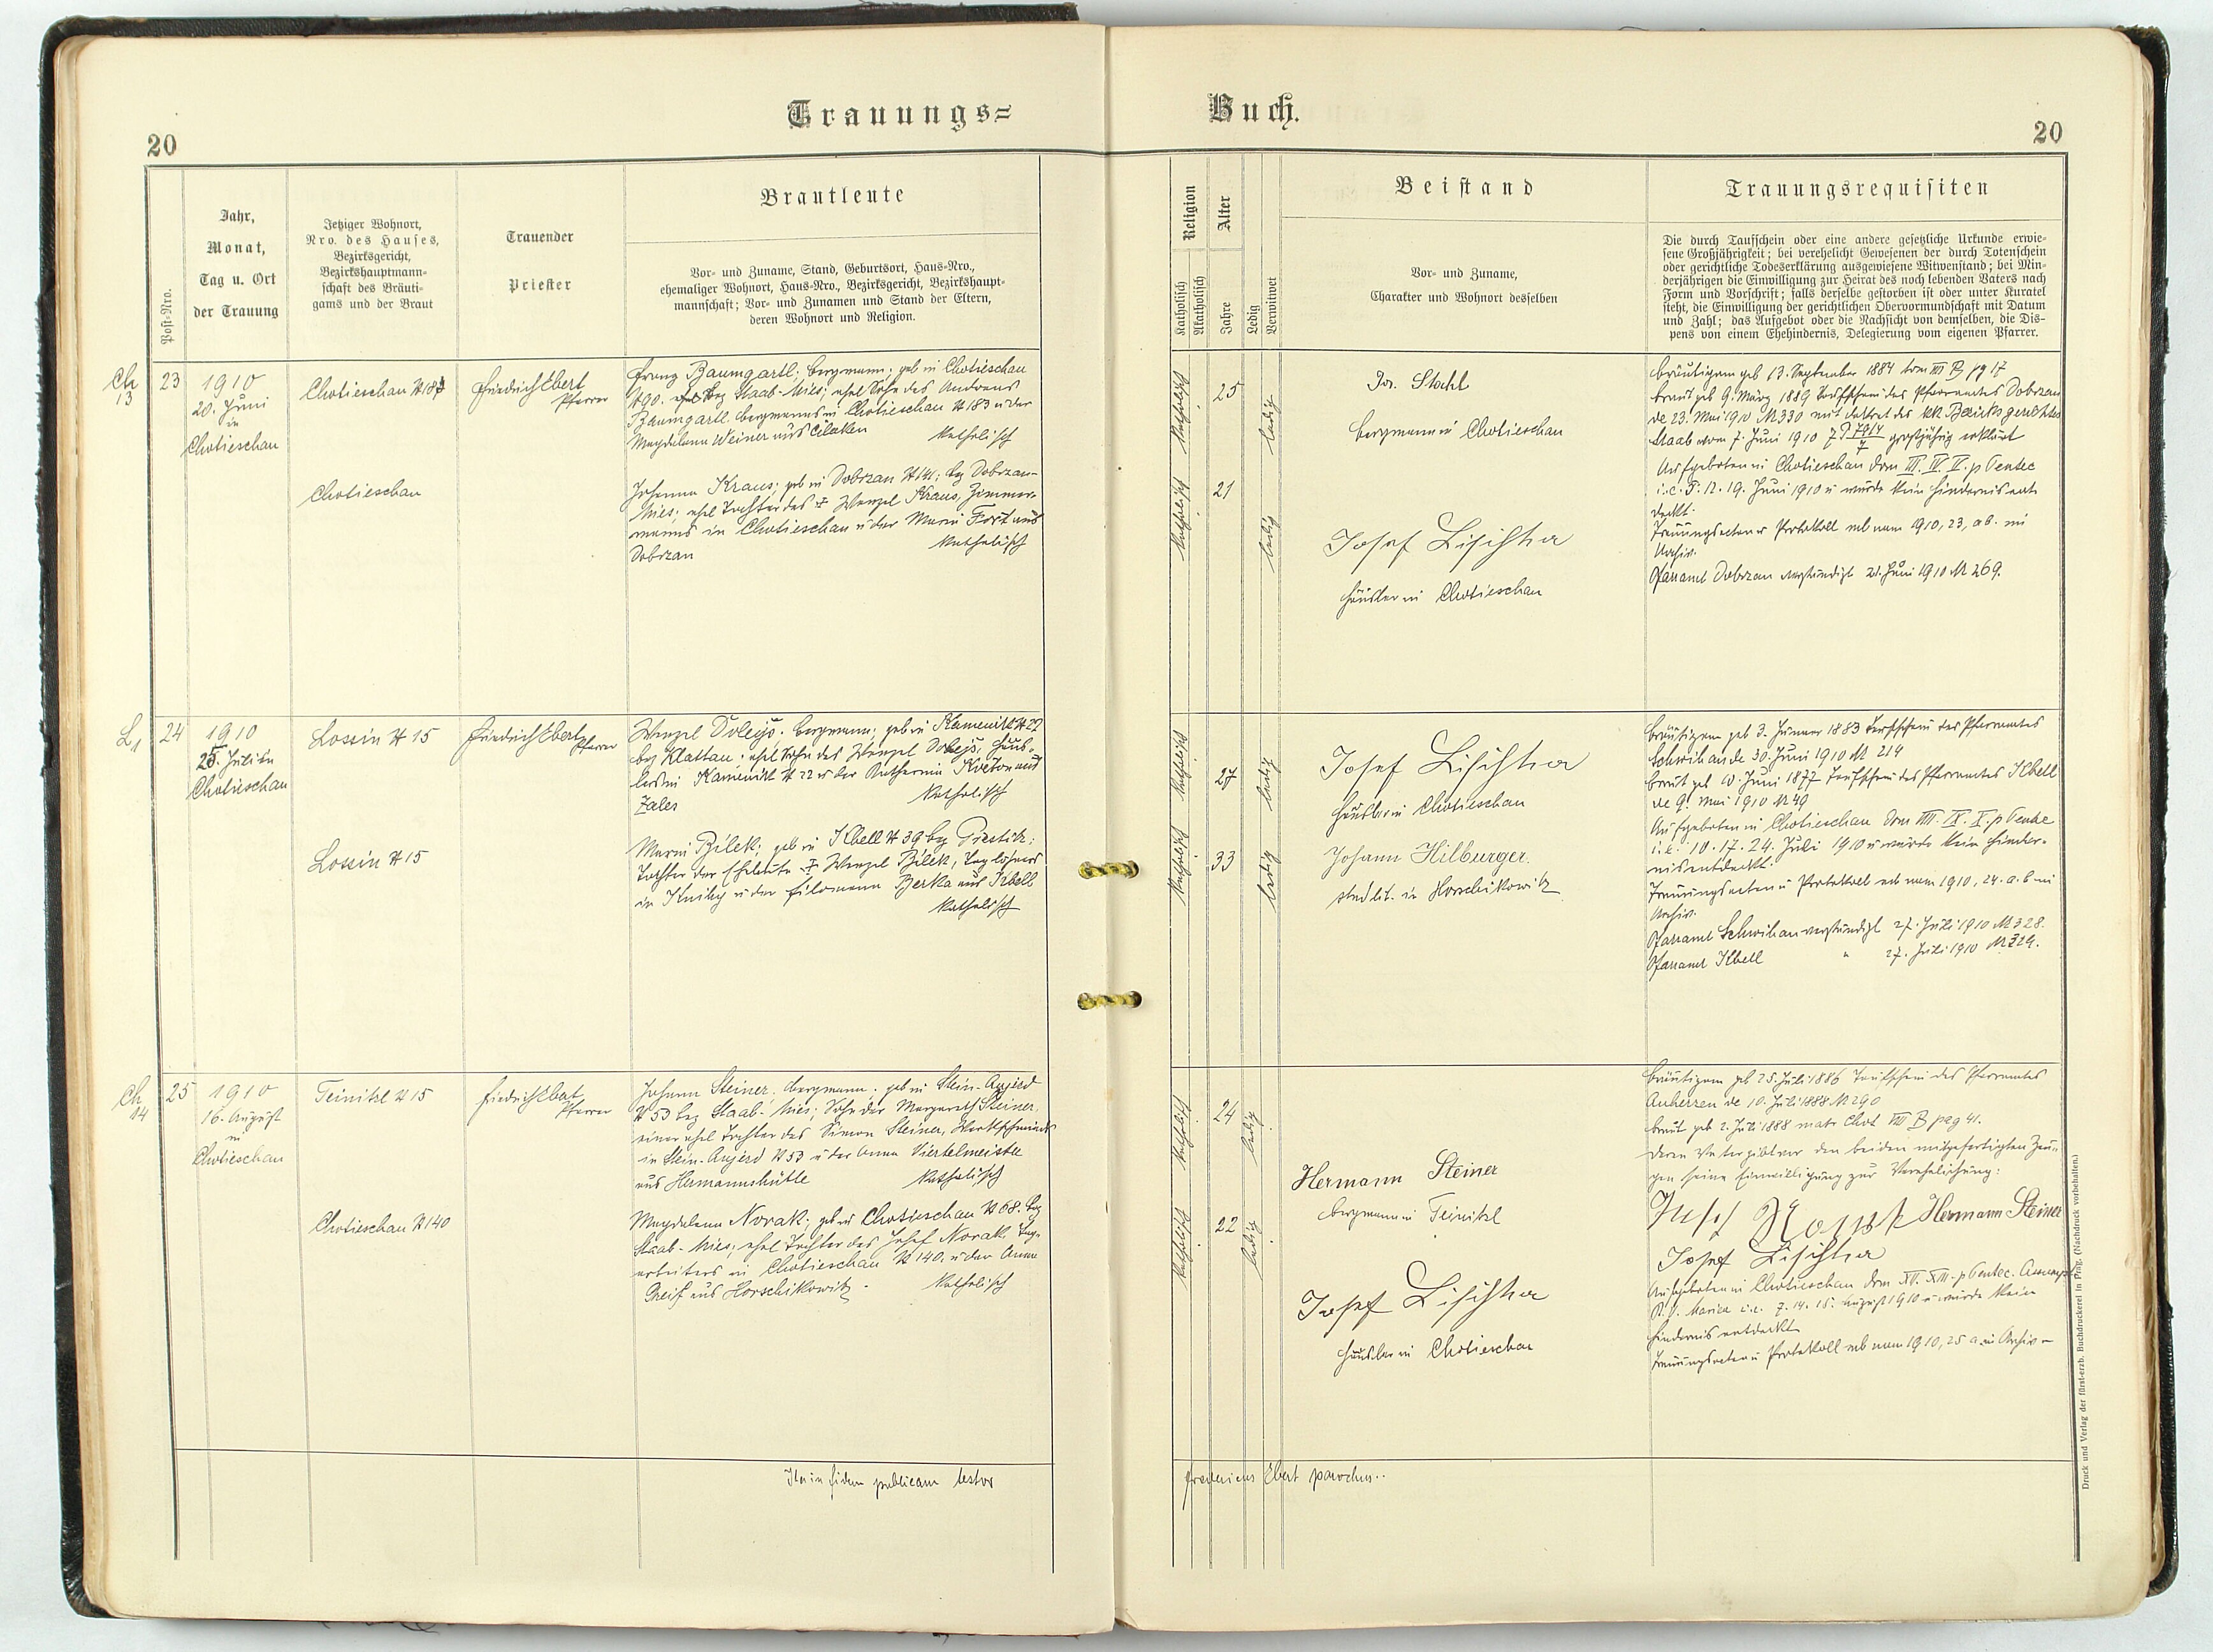 Trauungs=
Buch.
20
20
Post=Nro.
Jahr,
Monat,
Tag u. Ort
der Trauung
Jetziger Wohnort,
Nro. des Hauses,
Bezirksgericht,
Bezirkshauptmann-
schaft des Bräuti-
gams und der Braut
Trauender
Priester
Brautleute
Vor- und Zuname, Stand, Geburtsort, Haus=Nro.,
ehemaliger Wohnort, Haus=Nro., Bezirksgericht, Bezirkshaupt-
mannschaft; Vor- und Zunamen und Stand der Eltern,
deren Wohnort und Religion.
Religion
Katholisch
Akatholisch
Alter
Jahre
Ledig
Verwitwet
Beistand
Vor- und Zuname,
Charakter und Wohnort desselben
Trauungsrequisiten
Die durch Taufschein oder eine andere gesetzliche Urkunde erwie-
sene Großjährigkeit; bei verehelicht Gewesenen der durch Totenschein
oder gerichtliche Todeserklärung ausgewiesene Witwenstand; bei Min-
derjährigen die Einwilligung zur Heirat des noch lebenden Vaters nach
Form und Vorschrift; falls derselbe gestorben ist oder unter Kuratel
steht, die Einwilligung der gerichtlichen Obervormundschaft mit Datum
und Zahl; das Aufgebot oder die Nachsicht von demselben, die Dis-
pens von einem Ehehindernis, Delegierung vom eigenen Pfarrer.
Ch
13
23
1910
20. Juni
in
Chotieschau
Chotieschau N 187
Friedrich Ebert
Pfarrer
Franz Baumgartl, Bergmann; geb in Chotieschau
N 90. Bez Staab-Mies; ehel Sohn des Andreas
Baumgartl Bergmanns in Chotieschau N 183 u der
Magdalena Weiner aus
Katholisch
Chotieschau
Johanna Kraus; geb in Dobrzan N 141; Bez Dobrzan-
Mies; ehel Tochter des ┼ Wenzel Kraus, Zimmer-
manns in Chotieschau u der Maria Fort aus
Dobrzan
Katholisch
Katholisch
25
ledig
Katholisch
21
ledig
Jos. Stahl
Bergmann in Chotieschau
Josef Lischka
Häusler in Chotieschau
Bräutigam geb 13. September 1884 tom III B pg 17
Braut geb 9. März 1889 Taufschein des Pfarramtes Dobrzan
de 23. Mai 1910 N 330 mit Dekret des kk Bezirksgerichtes
Staab vom 7. Juni 1910 großjährig erklärt
Aufgeboten in Chotieschau Dom III. IV. V. p Pentec
i.e. 5. 12. 19. Juni 1910 u wurde kein Hindernis ent-
deckt.
Trauungsacten u Protokoll sub num 1910, 23, ab. im
Archiv.
Pfarramt Dobrzan verständigt 21. Juni 1910 N 269.
L
1
24
1910
25. Juli in
Chotieschau
Lossin N 15
Friedrich Ebert
Pfarrer
Wenzel Dolejš. Bergmann; geb in Kamenik N 22
bez Klattau; ehel Sohn des Wenzel Dolejš, Häus-
lers in Kamenik N 22 u der Katharina aus
Zales
Katholisch
Lossin N 15
Maria Bílek; geb in Kbell N 39 bez Prestitz;
Tochter der Eheleute ┼ Wenzel Bílek, Taglöhners
in u der Filomena Berka aus Kbell
Katholisch
Katholisch
27
ledig
Katholisch
33
ledig
Josef Lischka
Häusler in Chotieschau
Johann Hilburger.
in Horschikowitz
Bräutigam geb 3. Januar 1883 Taufschein des Pfarramtes
Schwihau de 30. Juni 1910 N 214
Braut geb 10. Juni 1877 Taufschein des Pfarramtes Kbell
de 9. Mai 1910 N 49
Aufgeboten in Chotieschau Dom VIII. IX. X. p Pentec
i.e. 10. 17. 24. Juli 1910 u wurde kein Hinder-
nis entdeckt.
Trauungsacten u Protokoll sub num 1910, 24. a. b im
Archiv.
Pfarramt Schwihau verständigt 27. Juli 1910 N 328.
Pfarramt Kbell " 27. Juli 1910 N 329.
Ch
14
25
1910
16. August
in
Chotieschau
Teinitzl N 15
Friedrich Ebert
Pfarrer
Johann Steiner, Bergmann; geb in Stein-Aujezd
N 53 bez Staab-Mies; Sohn der Margareth Steiner,
einer ehel Tochter des Simon Steiner,
in Stein-Aujezd N 53 u der Anna Viertelmeister
aus Hermannshütte
Katholisch
Chotieschau N 140
Magdalena Novak; geb in Chotieschau N 68. bez
Staab-Mies; ehel Tochter des Josef Novak Tag-
arbeiters in Chotieschau N 140. u der Anna
Greif aus Horschikowitz.
Katholisch
Katholisch
24
ledig
Katholisch
22
ledig
Hermann Steiner
Bergmann in Teinitzl
Josef Lischka
Häusler in Chotieschau
Bräutigam geb 25. Juli 1886 Taufschein des Pfarramtes
Auherzen de 10. Juli 1888 N 290
Braut geb 2. Juli 1888 matr Chot VIII B pag 41.
Deren Vater gibt vor den beiden mitgefertigten Zeu-
gen seine Einwilligung zur Verehelichung:
Josef Hermann Steiner
Josef Lischka
Aufgeboten in Chotieschau Dom XII. XIII. p Pentec. Assumpt
B. V. Mariae i.e. 7. 14. 15. August 1910 u wurde kein
Hindernis entdeckt
Trauungsacten u Protokoll sub num 1910, 25 a im Archiv
Ita in fidem publicam testor
Fredericus Ebert parochus..
Druck und Verlag der fürst-erzb. Buchdruckerei in Prag. (Nachdruck vorbehalten.)